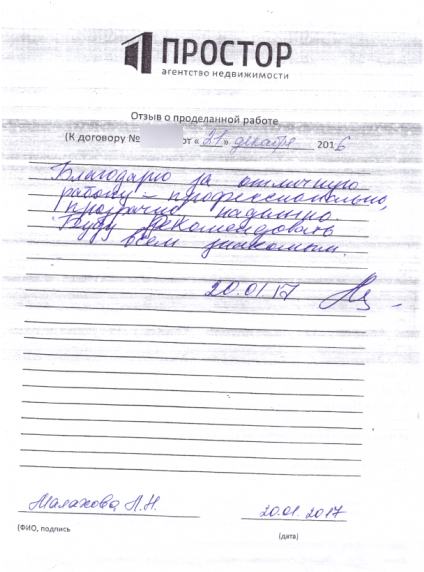 ПРОСТОР
агентство недвижимости
Отзыв о проделанной работе
(К договору № от « 21 » декабря 2016
Благодарю за отличную
работу – профессионально,
прозрачно надежно.
Буду рекомендовать
всем знакомым.
20.01.17
Малахова Л.Н. 20.01.2017
(ФИО, подпись (дата)